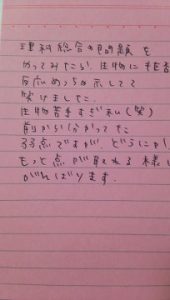 理科総合の問題を
やってみたら、生物に拒否
反応めっちゃ示してて
笑けました。
生物苦手すぎ私(笑)
前から分かってた
弱点ですが、どうにか
もっと点が取れる様
がんばります。